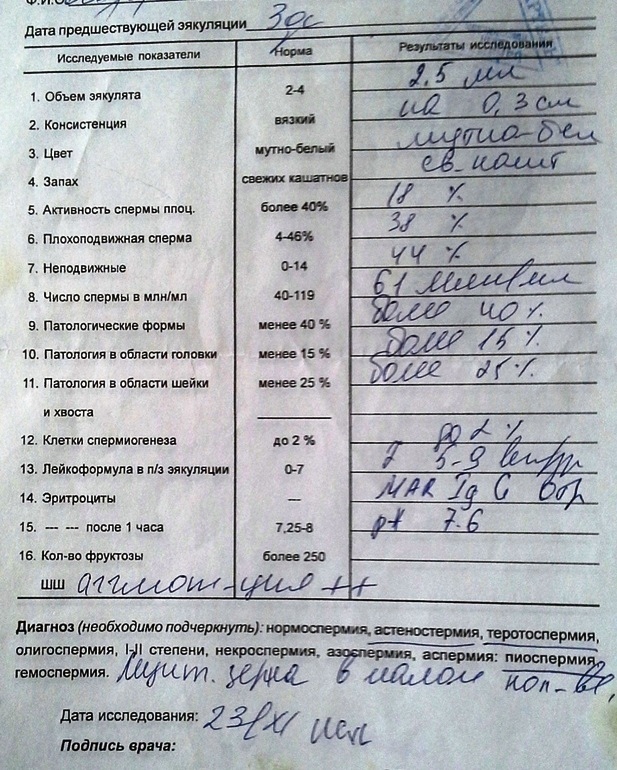 Дата предшествующей эякуляции
Исследуемые показатели Норма Результаты исследования
1. Объем эякулята 2-4 2,5 мл
2. Консистенция вязкий на 0,3 см
3. Цвет мутно-белый мутно-бел
4. Запах свежих кашатнов св. кашт
5. Активность спермы ппоц. более 40% 18 %
6. Плохоподвижная сперма 4-46% 38 %
7. Неподвижные 0-14 44 %
8. Число спермы в млн/мл 40-119 61 млн/мл
9. Патологические формы менее 40 % более 40 %
10. Патология в области головки менее 15 % более 15 %
11. Патология в области шейки менее 25 % более 25 %
и хвоста
12. Клетки спермиогенеза до 2 % до 2 %
13. Лейкоформула в п/з эякуляции 0-7 5-9
14. Эритроциты --- MAR Ig G отр
15. --- --- после 1 часа 7,25-8 pH 7.6
16. Кол-во фруктозы более 250
ШШ ++
Диагноз (необходимо подчеркнуть): нормоспермия, астеностермия, теротоспермия,
олигоспермия, I-II степени, некроспермия, азоспермия, аспермия: пиоспермия,
гемоспермия. Лецит. зерна в малом кол-ве,
Дата исследования: 23/XI
Подпись врача: